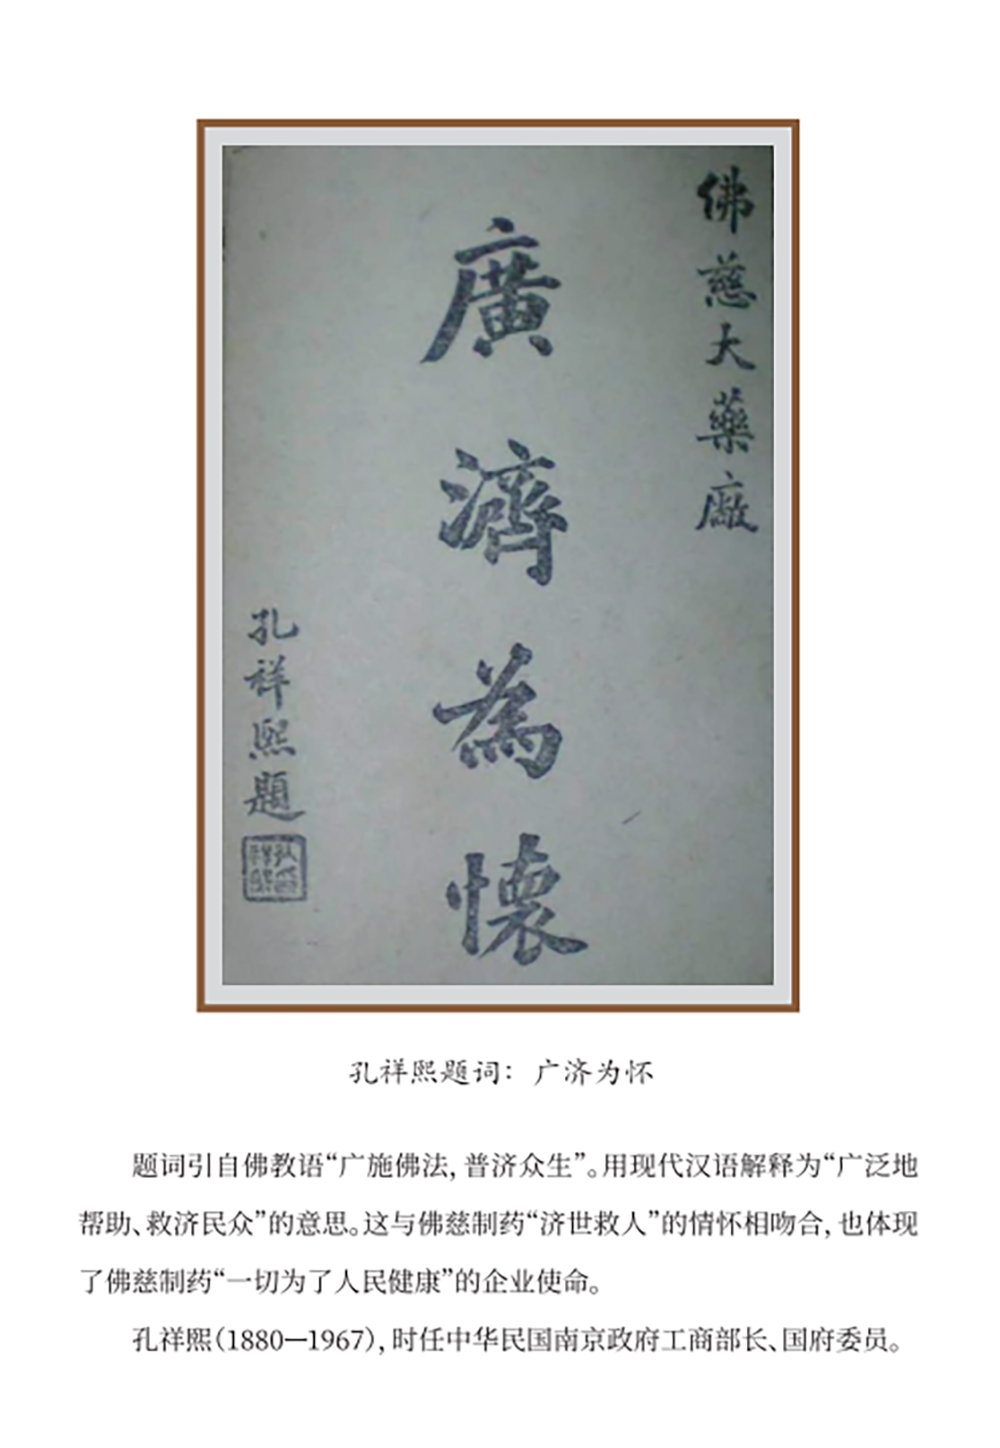 佛慈大藥廠
廣濟為懷
孔祥熙題
孔祥熙题词：广济为怀
题词引自佛教语“广施佛法，普济众生”。用现代汉语解释为“广泛地
帮助、救济民众”的意思。这与佛慈制药“济世救人”的情怀相吻合，也体现
了佛慈制药“一切为了人民健康”的企业使命。
孔祥熙（1880—1967），时任中华民国南京政府工商部长、国府委员。